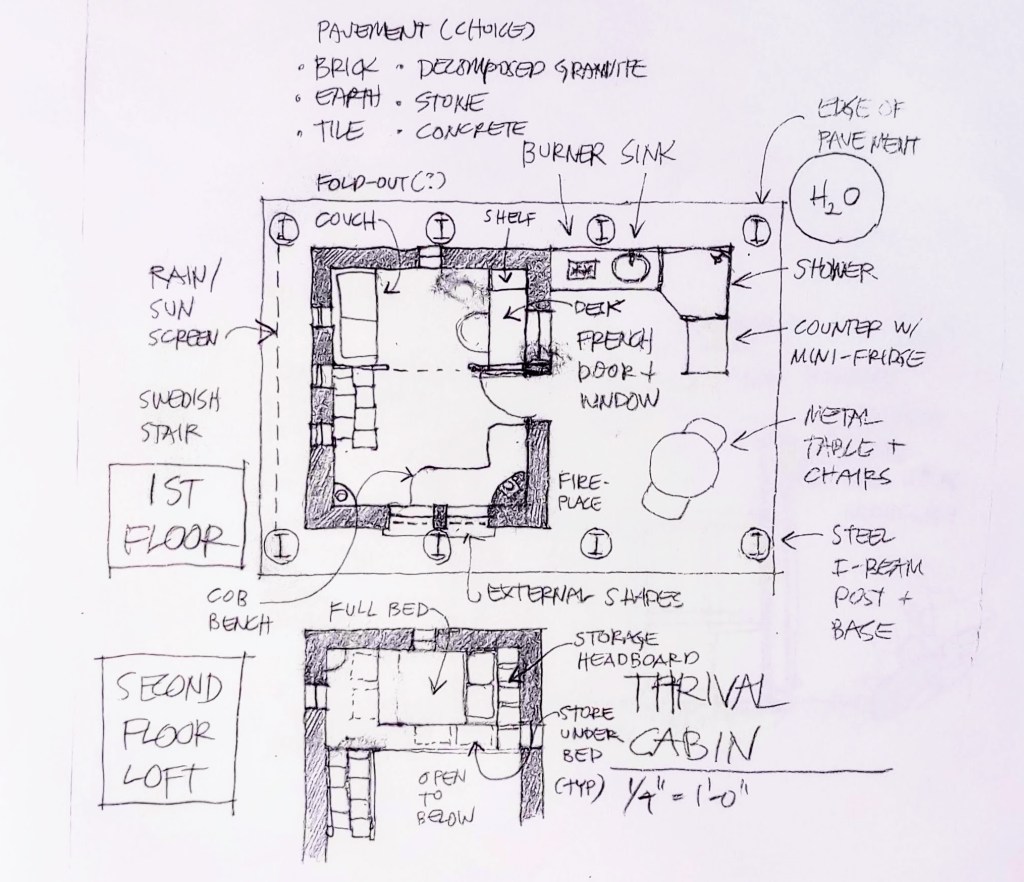 PAVEMENT (CHOICE)
• BRICK • DECOMPOSED GRANITE
• EARTH • STONE
• TILE • CONCRETE
EDGE OF
PAVEMENT
BURNER SINK
H2O
FOLD-OUT(?)
COUCH
SHELF
I I I I
RAIN/
SUN
SCREEN
SHOWER
DESK
FRENCH
DOOR +
WINDOW
COUNTER W/
MINI-FRIDGE
SWEDISH
STAIR
METAL
TABLE +
CHAIRS
1ST
FLOOR
FIRE-
PLACE
I I I I
STEEL
I-BEAM
POST +
BASE
COB
BENCH
EXTERNAL SHADES
FULL BED
STORAGE
HEADBOARD
SECOND
FLOOR
LOFT
STORE
UNDER
BED
(TYP)
OPEN
TO
BELOW
THRIVAL
CABIN
1/4" = 1'-0"